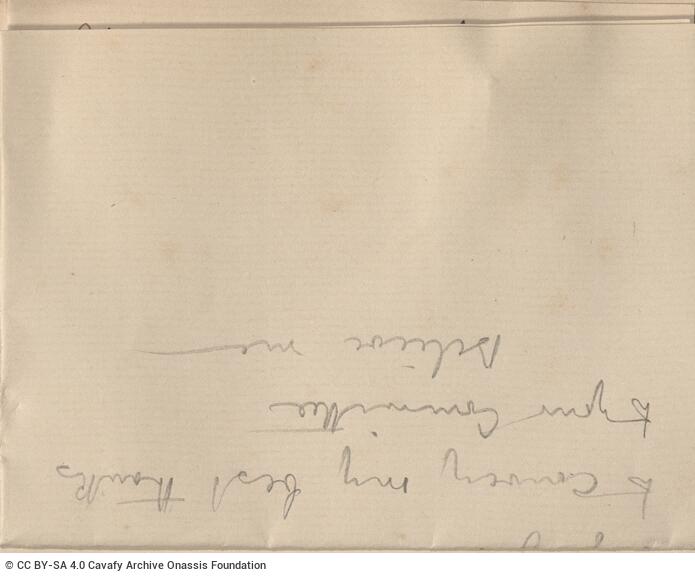 to convey my best thanks
to your Committee
Believe me
© CC BY-SA 4.0 Cavafy Archive Onassis Foundation